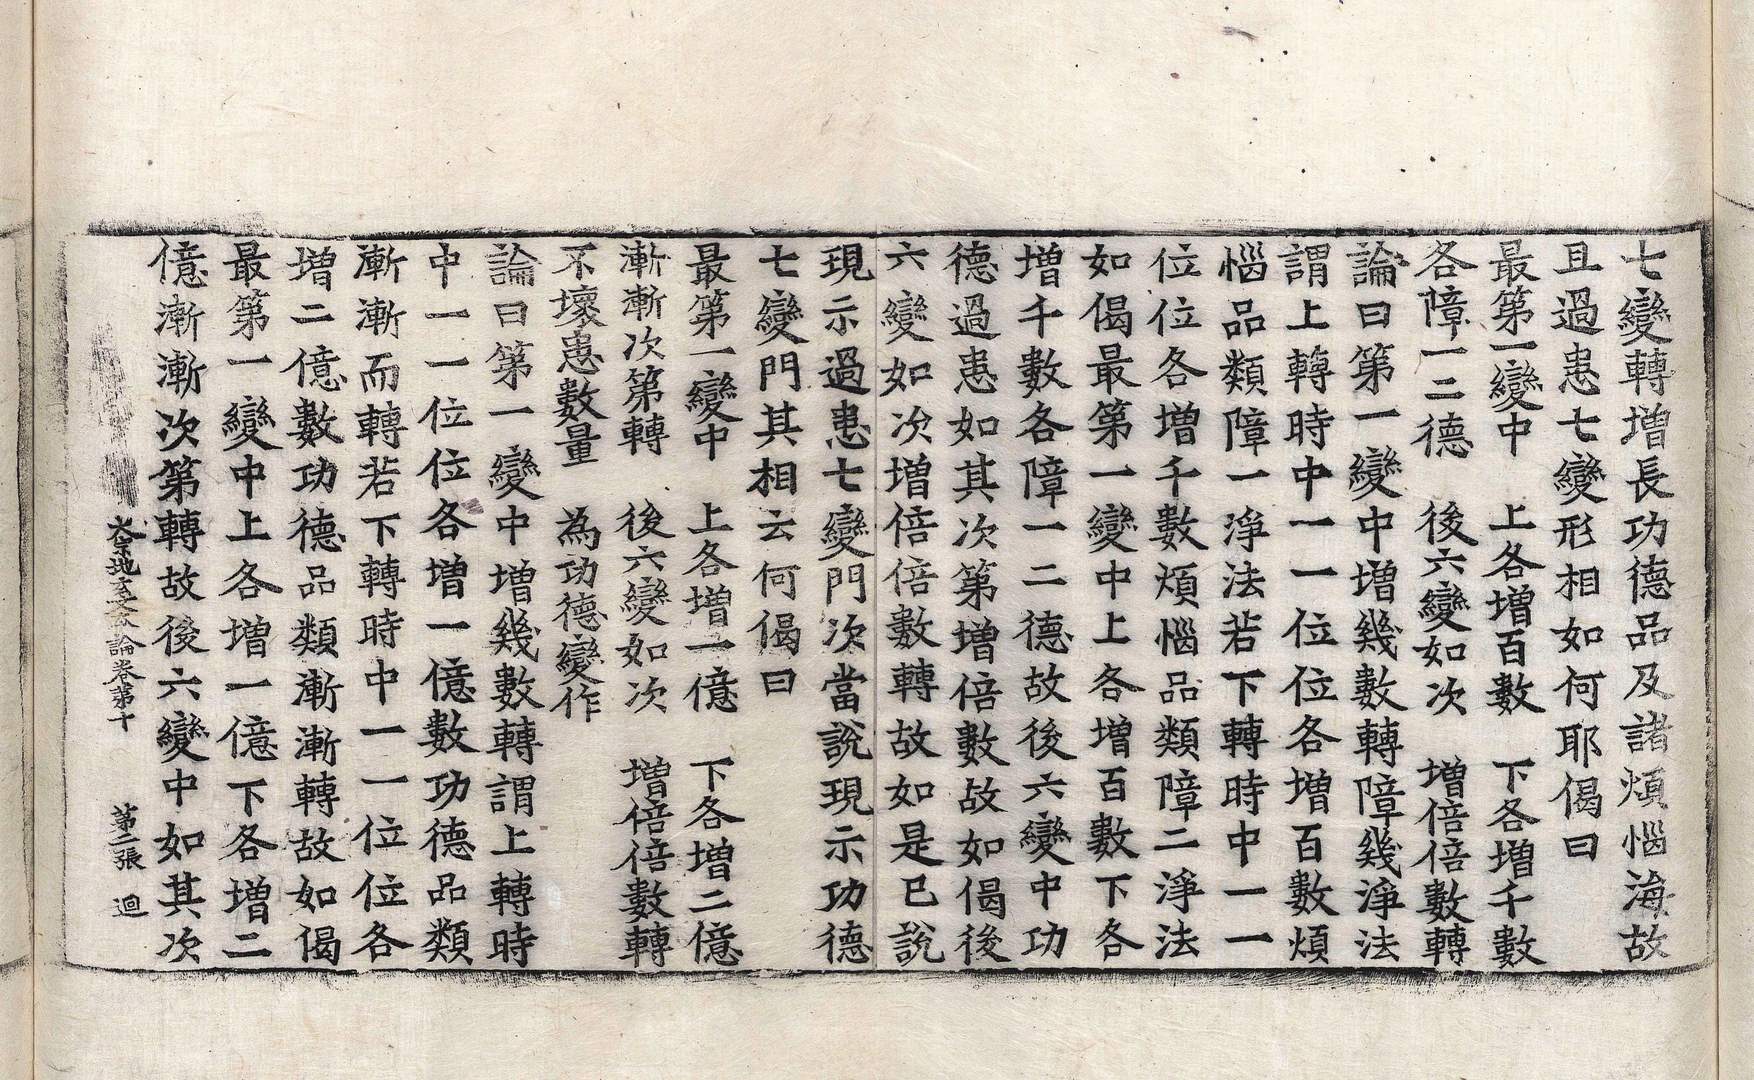 七變轉增長功德品及諸煩惱海故
且過患七變形相如何耶偈曰
最第一變中　上各增百數　下各增千數
各障一二德　後六變如次　增倍倍數轉
論曰第一變中增幾數轉障幾淨法
謂上轉時中一一位位各增百數煩
惱品類障一淨法若下轉時中一一
位位各增千數煩惱品類障二淨法
如偈最第一變中上各增百數下各
增千數各障一二德故後六變中功
德過患如其次第增倍數故如偈後
六變如次增倍倍數轉故如是已說
現示過患七變門次當說現示功德
七變門其相云何偈曰
最第一變中　上各增一億　下各增二億
漸漸次第轉　後六變如次　增倍倍數轉
不壞患數量　為功德變作
論曰第一變中增幾數轉謂上轉時
中一一位位各增一億數功德品類
漸漸而轉若下轉時中一一位位各
增二億數功德品類漸漸轉故如偈
最第一變中上各增一億下各增二
億漸漸次第轉故後六變中如其次
論卷第十　第二張　迴